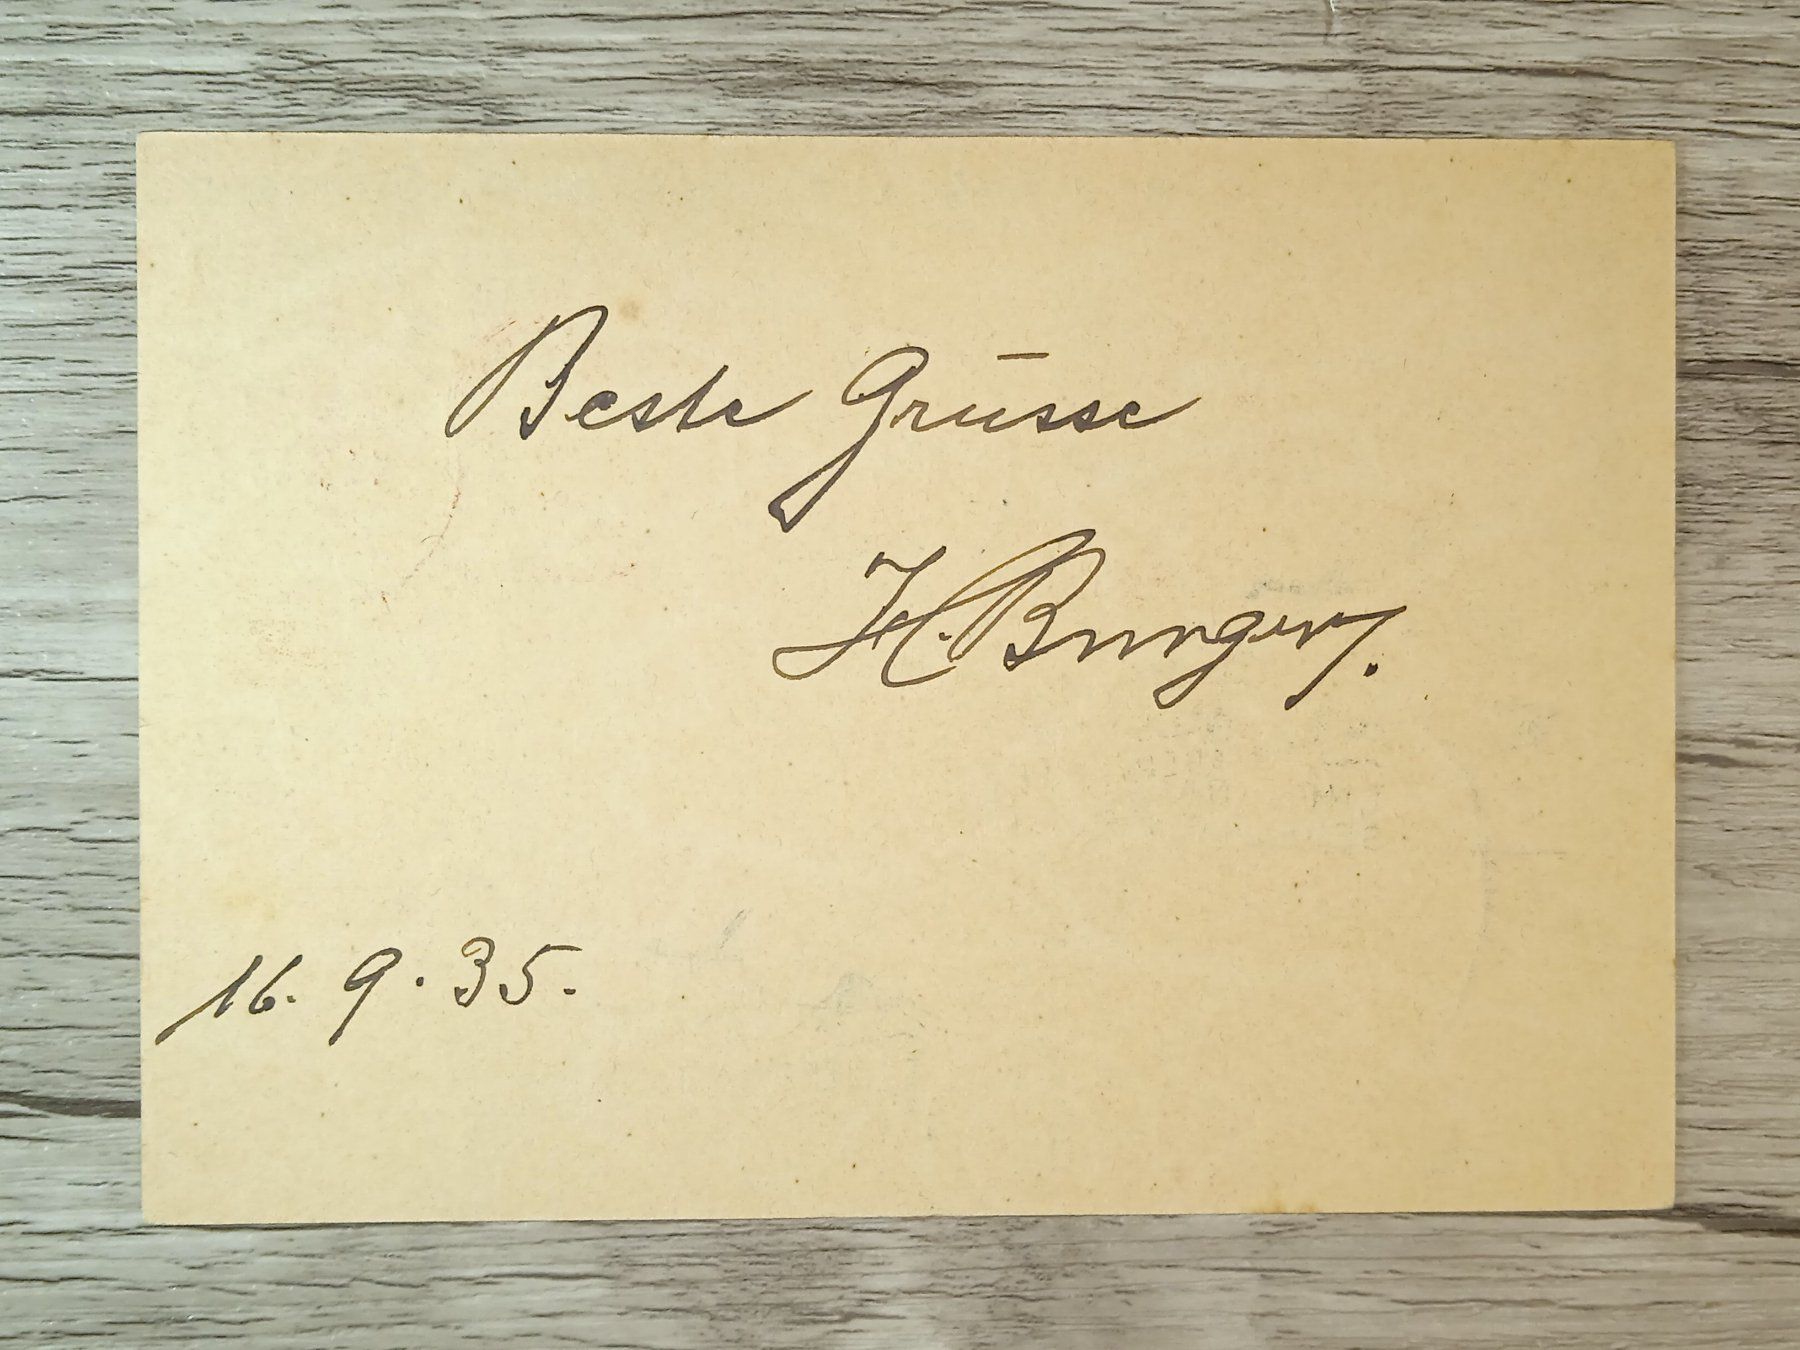 Beste Grüsse
H. Burger.
16. 9. 35.